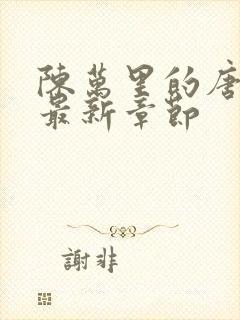 陳萬里的唐
最新章節
謝非